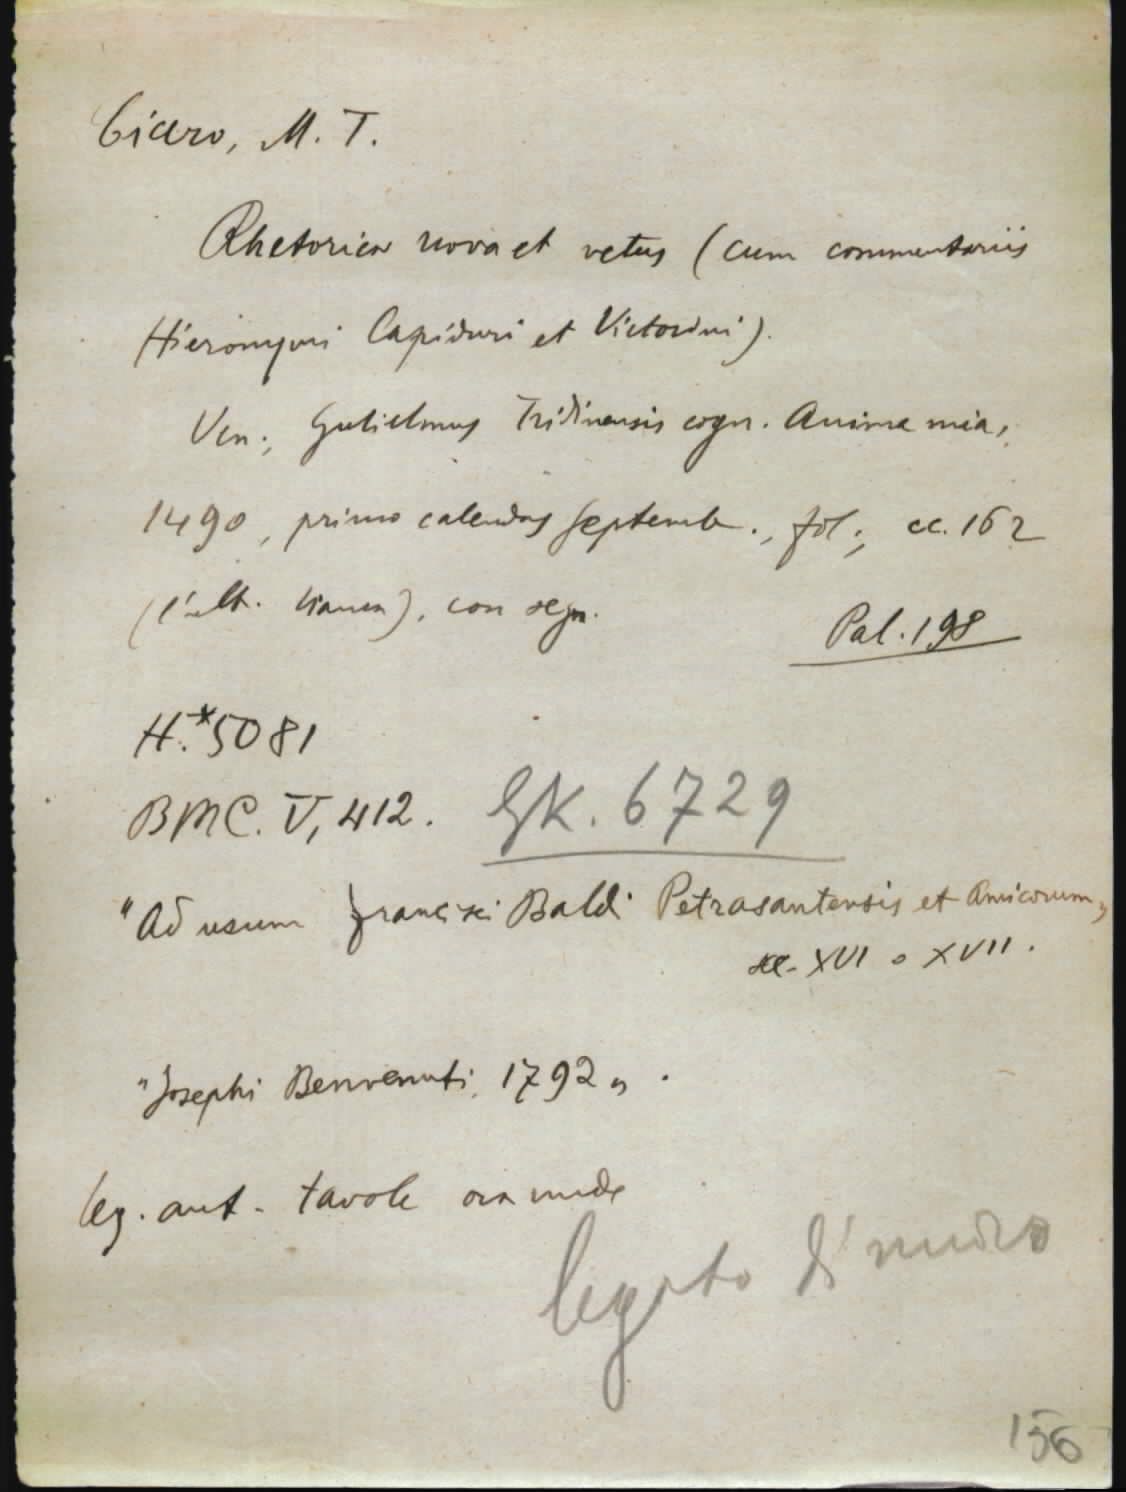 Cicero, M. T.
Rhetorica nova et vetus (cum commentariis
Hieronymi Capiduri et Victorini).
Ven., Gulielmus Tridinensis cogn. Anima mia,
1490, primo calendas septemb., fol., cc. 162
(l'ult. bianca), con segn.
Pal. 198
H.*5081
BMC. V, 412. GK. 6729
"Ad usum Francisci Baldi Petrasantensis et Amicorum„
sec. XVI o XVII.
"Josephi Benvenuti, 1792„.
leg. ant. tavole ora nude
legato di nuovo
156